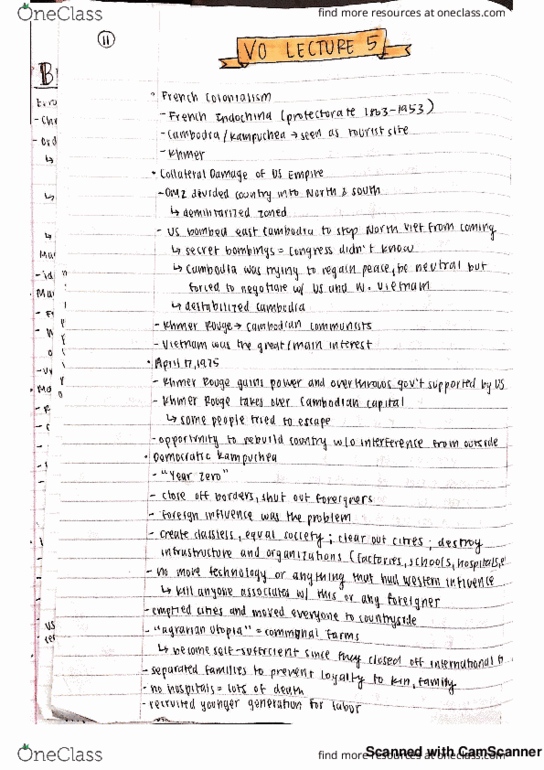 OneClass
find more resources at oneclass.com
11
VO LECTURE 5
• French Colonialism
- French Indochina (protectorate 1863-1953)
- Cambodia/Kampuchea → seen as tourist site
- Khmer
• Collateral Damage of US Empire
- DMZ divided country into North & South
↳ demilitarized zoned
- US bombed east Cambodia to stop North Viet from coming
↳ secret bombings = Congress didn't know
↳ Cambodia was trying to regain peace, be neutral but
forced to negotiate w/ US and N. Vietnam
↳ destabilized Cambodia
- Khmer Rouge → Cambodian communists
- Vietnam was the great/main interest
• April 17, 1975
- Khmer Rouge gains power and overthrows gov't supported by US
- Khmer Rouge takes over Cambodian capital
↳ some people tried to escape
- opportunity to rebuild country w/o interference from outside
• Democratic Kampuchea
- "Year Zero"
- close off borders, shut out foreigners
- foreign influence was the problem
- create classless, equal society; clear out cities; destroy
infrastructure and organizations (factories, schools, hospitals, e
- no more technology or anything that had western influence
↳ kill anyone associated w/ this or any foreigner
- emptied cities and moved everyone to countryside
- "agrarian utopia" = communal farms
↳ become self-sufficient since they closed off international
- separated families to prevent loyalty to kin, family
- no hospitals = lots of death
- recruited younger generation for labor
OneClass
find more resources at oneclass.com
Scanned with CamScanner